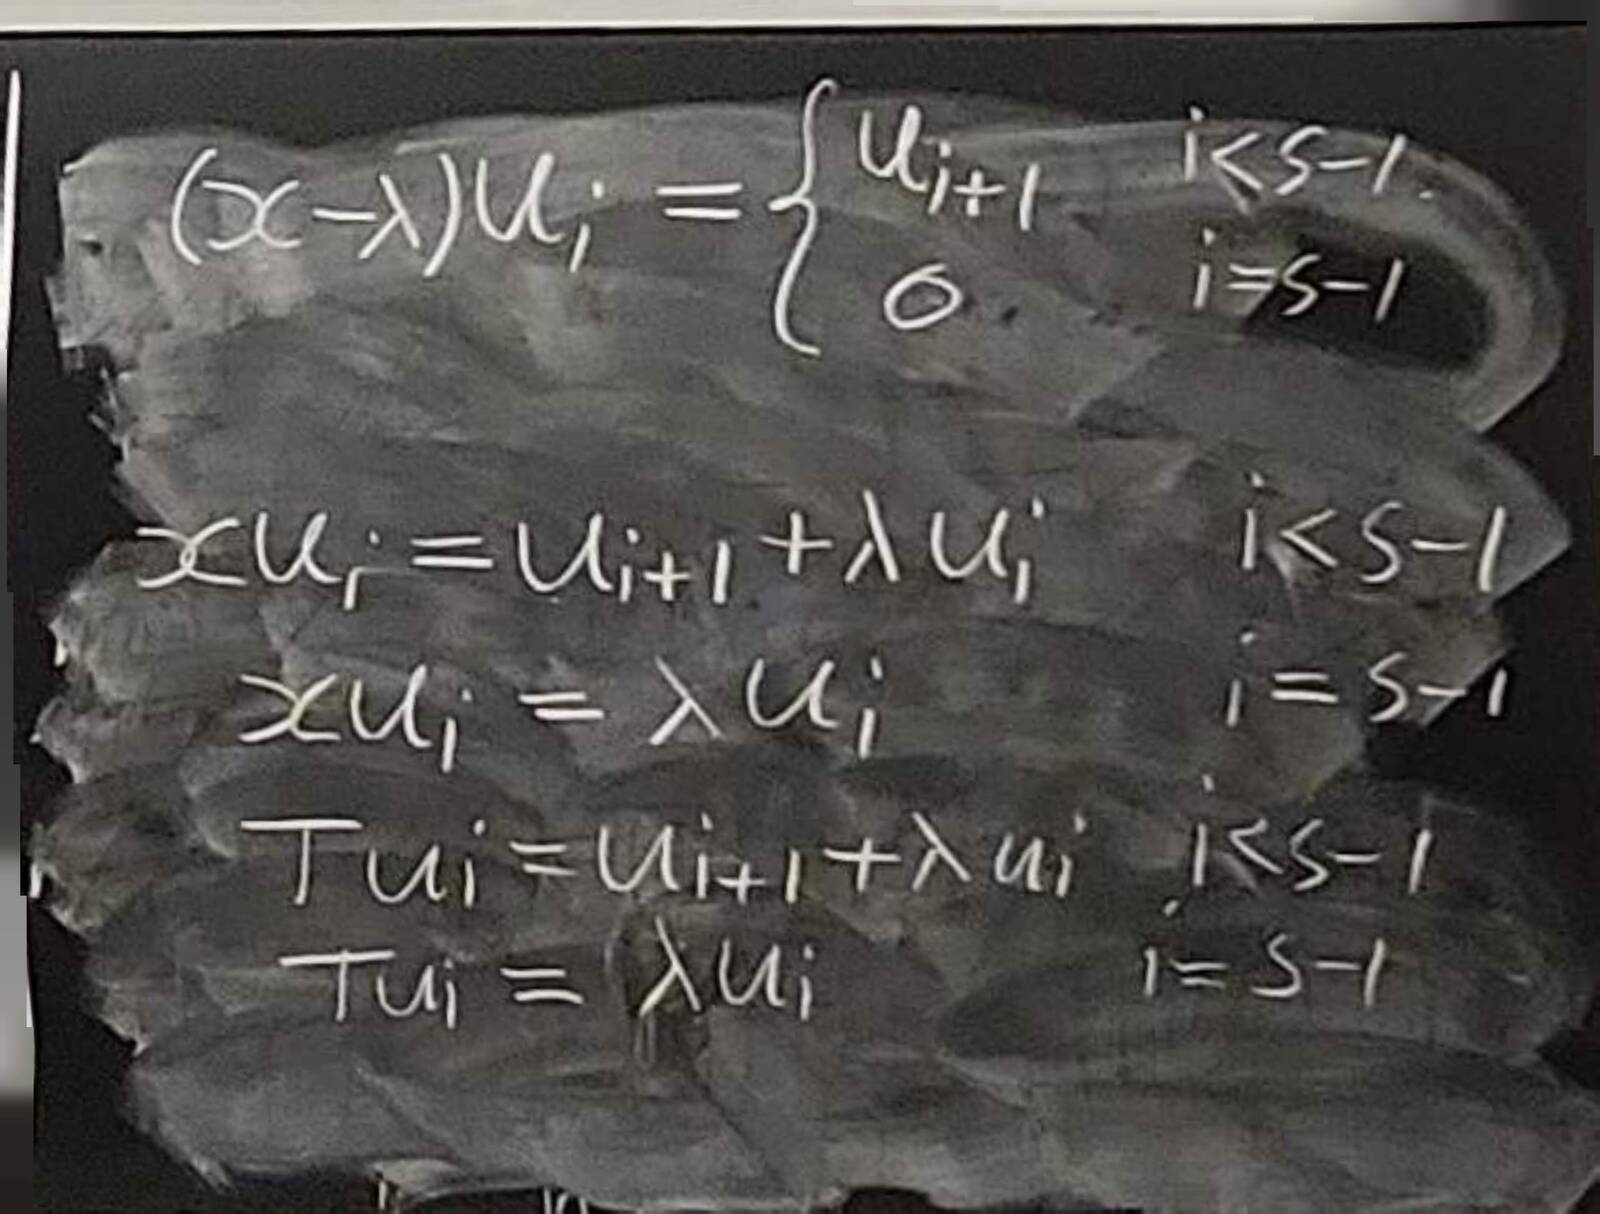 (x-λ)u_i = { u_{i+1} i<s-1.
0 i=s-1
xu_i = u_{i+1} + λu_i i<s-1
xu_i = λu_i i=s-1
Tu_i = u_{i+1} + λu_i i<s-1
Tu_i = λu_i i=s-1